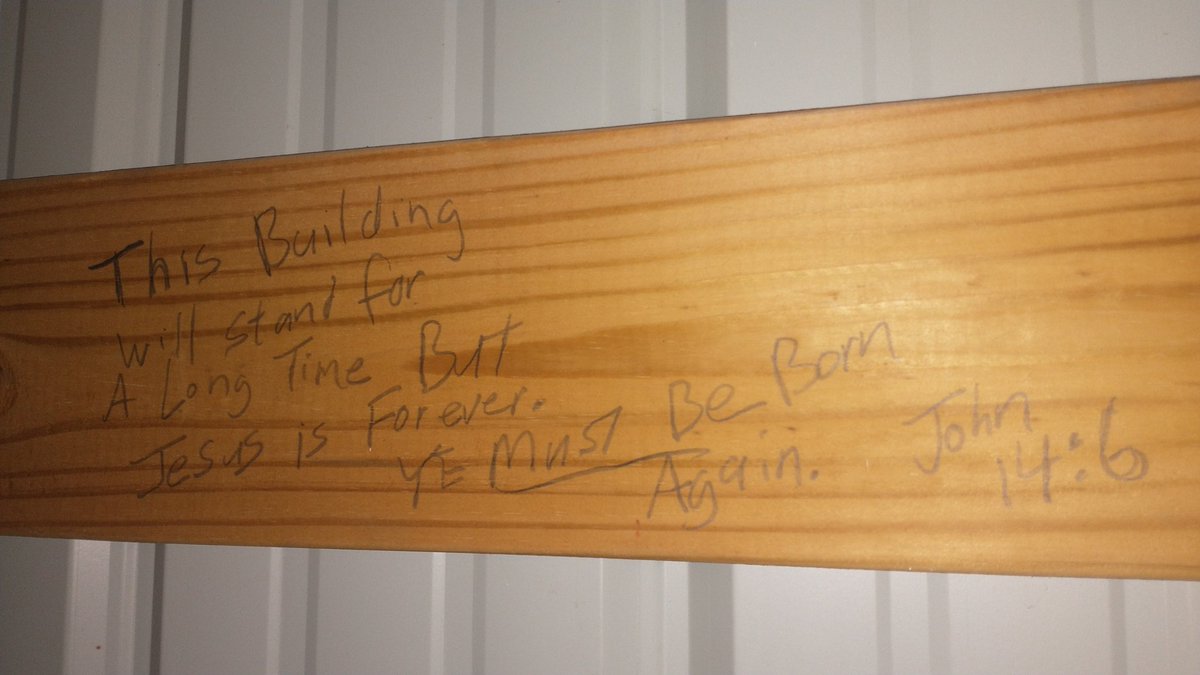 This Building
will stand for
A Long Time But
Jesus is Forever.
YE Must Be Born
Again.
John
14:6